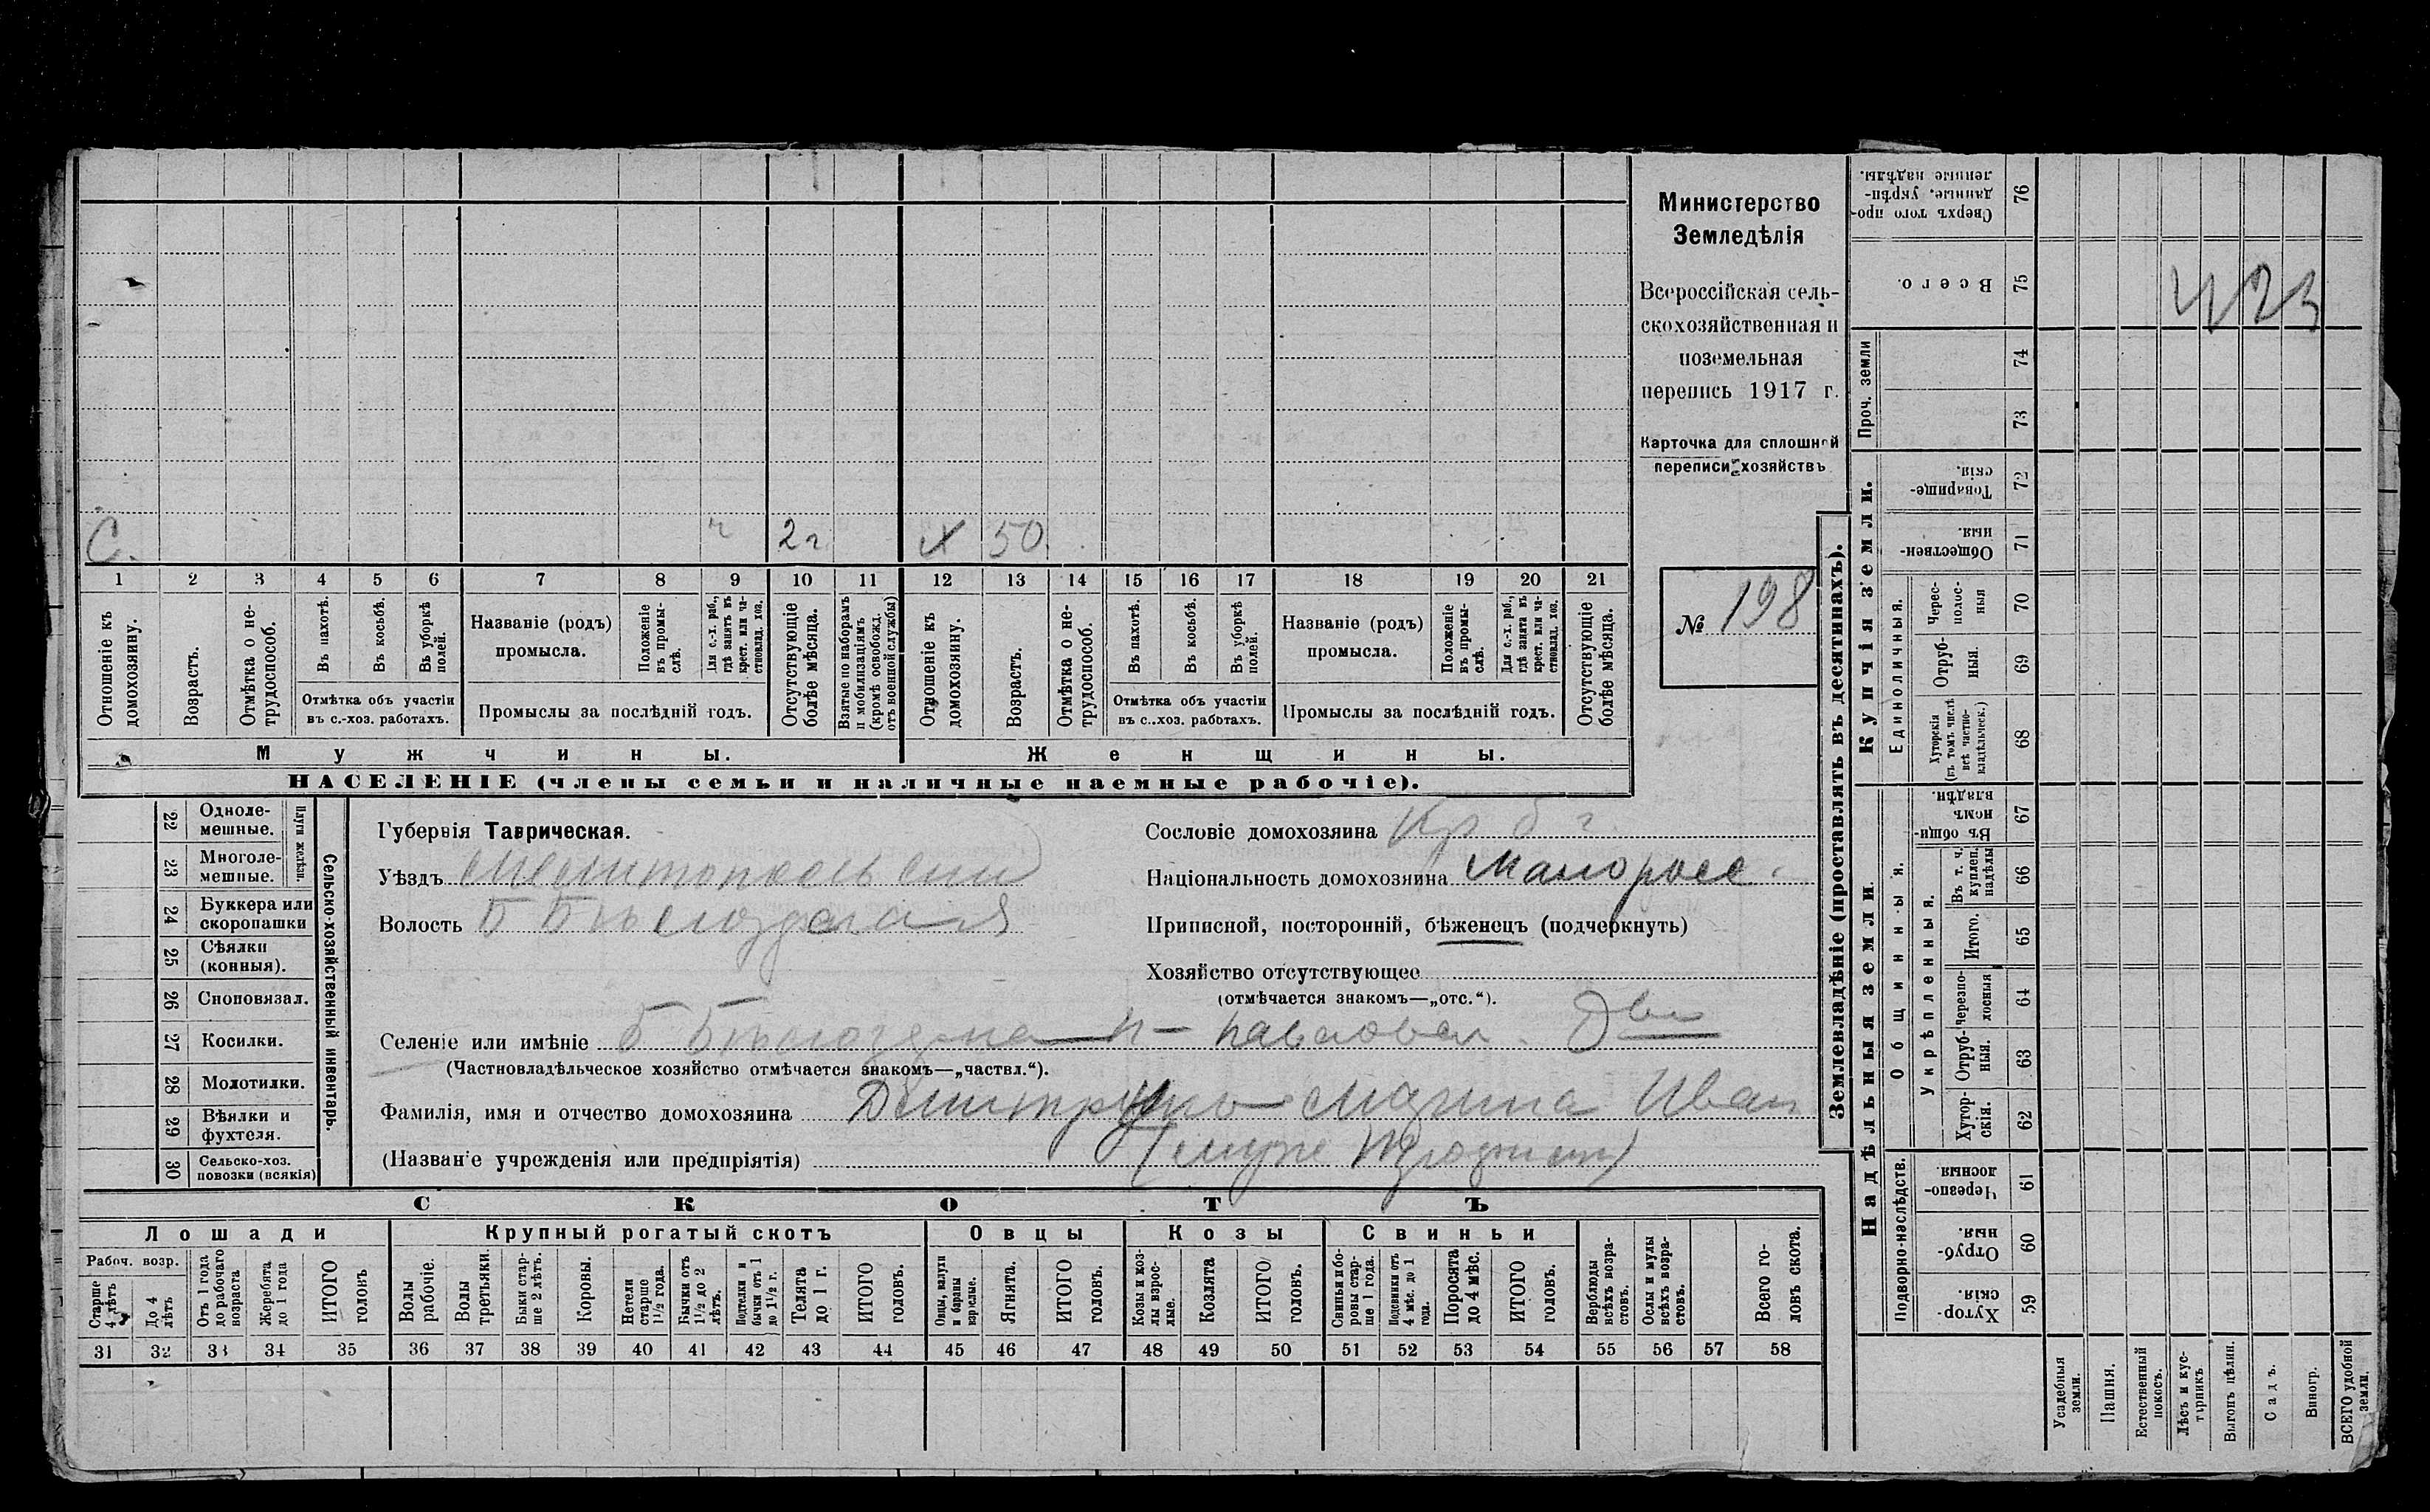 С. ч 2 г Х 50
1 2 3 4 5 6 7 8 9 10 11 12 13 14 15 16 17 18 19 20 21
Отношеніе къ домохозяину.
Возрастъ.
Отмѣтка о не-трудоспособ.
Въ пахотѣ.
Въ косьбѣ.
Въ уборкѣ полей.
Отмѣтка объ участіи
въ с.-хоз. работахъ.
Названіе (родъ)
промысла.
Положеніе въ промы-слѣ.
Для с.-х. раб., гдѣ занятъ въ крест. или ча-стновлад. хоз.
Промыслы за послѣдній годъ.
Отсутствующіе болѣе мѣсяца.
Взятые по наборамъ и мобилизаціямъ (кромѣ освобожд. отъ военной службы)
Отношеніе къ домохозяину.
Возрастъ.
Отмѣтка о не-трудоспособ.
Въ пахотѣ.
Въ косьбѣ.
Въ уборкѣ полей.
Отмѣтка объ участіи
въ с..хоз. работахъ.
Названіе (родъ)
промысла.
Положеніе въ промы-слѣ.
Для с.-х. раб., гдѣ занята въ крест. или ча-стновлад. хоз.
Промыслы за послѣдній годъ.
Отсутствующіе болѣе мѣсяца.
Мужчины.
Женщины.
НАСЕЛЕНІЕ (члены семьи и наличные наемные рабочіе).
Министерство
Земледѣлія
Всероссійская сель-
скохозяйственная и
поземельная
перепись 1917 г.
Карточка для сплошной
переписи хозяйствъ
№ 198
22 Одноле-мешные.
23 Многоле-мешные.
Плуги желѣзн.
24 Буккера или скоропашки
25 Сѣялки (конныя).
26 Сноповязал.
27 Косилки.
28 Молотилки.
29 Вѣялки и фухтеля.
30 Сельско-хоз. повозки (всякія)
Сельско-хозяйственный инвентарь.
Губернія Таврическая.
Уѣздъ Мелитопольскій
Волость Б Бѣлозерская
Сословіе домохозяина Кр
Національность домохозяина Малоросс.
Приписной, посторонній, бѣженецъ (подчеркнуть)
Хозяйство отсутствующее
(отмѣчается знакомъ—„отс.“).
Селеніе или имѣніе Б Бѣлозерка
(Частновладѣльческое хозяйство отмѣчается знакомъ—„частвл.“).
Фамилія, имя и отчество домохозяина Дмитренко Марина Иван
(Названіе учрежденія или предпріятія)
СКОТЪ
Лошади
Крупный рогатый скотъ
Овцы
Козы
Свиньи
Рабоч. возр.
Старше 4 лѣтъ
До 4 лѣтъ
Отъ 1 года до рабочаго возраста
Жеребята до 1 года
ИТОГО головъ
Волы рабочіе.
Волы третьяки.
Быки стар-ше 2 лѣтъ.
Коровы.
Нетели старше 1½ года.
Бычки отъ 1½ до 2 лѣтъ.
Подтелки и бычки отъ 1 до 1½ г.
Телята до 1 г.
ИТОГО головъ.
Овцы, валухи и бараны взрослые.
Ягнята.
ИТОГО головъ.
Козы и коз-лы взрос-лые.
Козлята
ИТОГО головъ.
Свиньи и бо-ровы стар-ше 1 года.
Подсвинки отъ 4 мѣс. до 1 года.
Поросята до 4 мѣс.
ИТОГО головъ.
Верблюды всѣхъ возра-стовъ.
Ослы и мулы всѣхъ возра-стовъ.
Всего го-ловъ скота.
31 32 33 34 35 36 37 38 39 40 41 42 43 44 45 46 47 48 49 50 51 52 53 54 55 56 57 58
Землевладѣніе (проставлять въ десятинахъ).
Сверхъ того про-данные, укрѣп-ленные надѣлы. 76
Всего. 75
423
Проч. земли
74
73
Купчія земли.
Товарище-скія. 72
Обществен-ныя 71
Единоличныя.
Черес-полос-ныя 70
Отруб-ныя. 69
Хуторскія (въ томъ числѣ всѣ частно-владѣльческ.) 68
Надѣльныя земли.
Общинныя.
Въ общи-номъ владѣн. 67
Укрѣпленныя.
Въ т. ч. куплен. надѣлы 66
Итого. 65
Черезпо-лосныя 64
Отруб-ныя. 63
Хутор-скія. 62
Подворно-наслѣдств.
Черезпо-лосныя. 61
Отруб-ныя. 60
Хутор-скія. 59
Усадебныя земли.
Пашня.
Естественный покосъ.
Лѣсъ и кус-тарникъ
Выгонъ цѣлин.
Садъ.
Виногр.
ВСЕГО удобной земли.